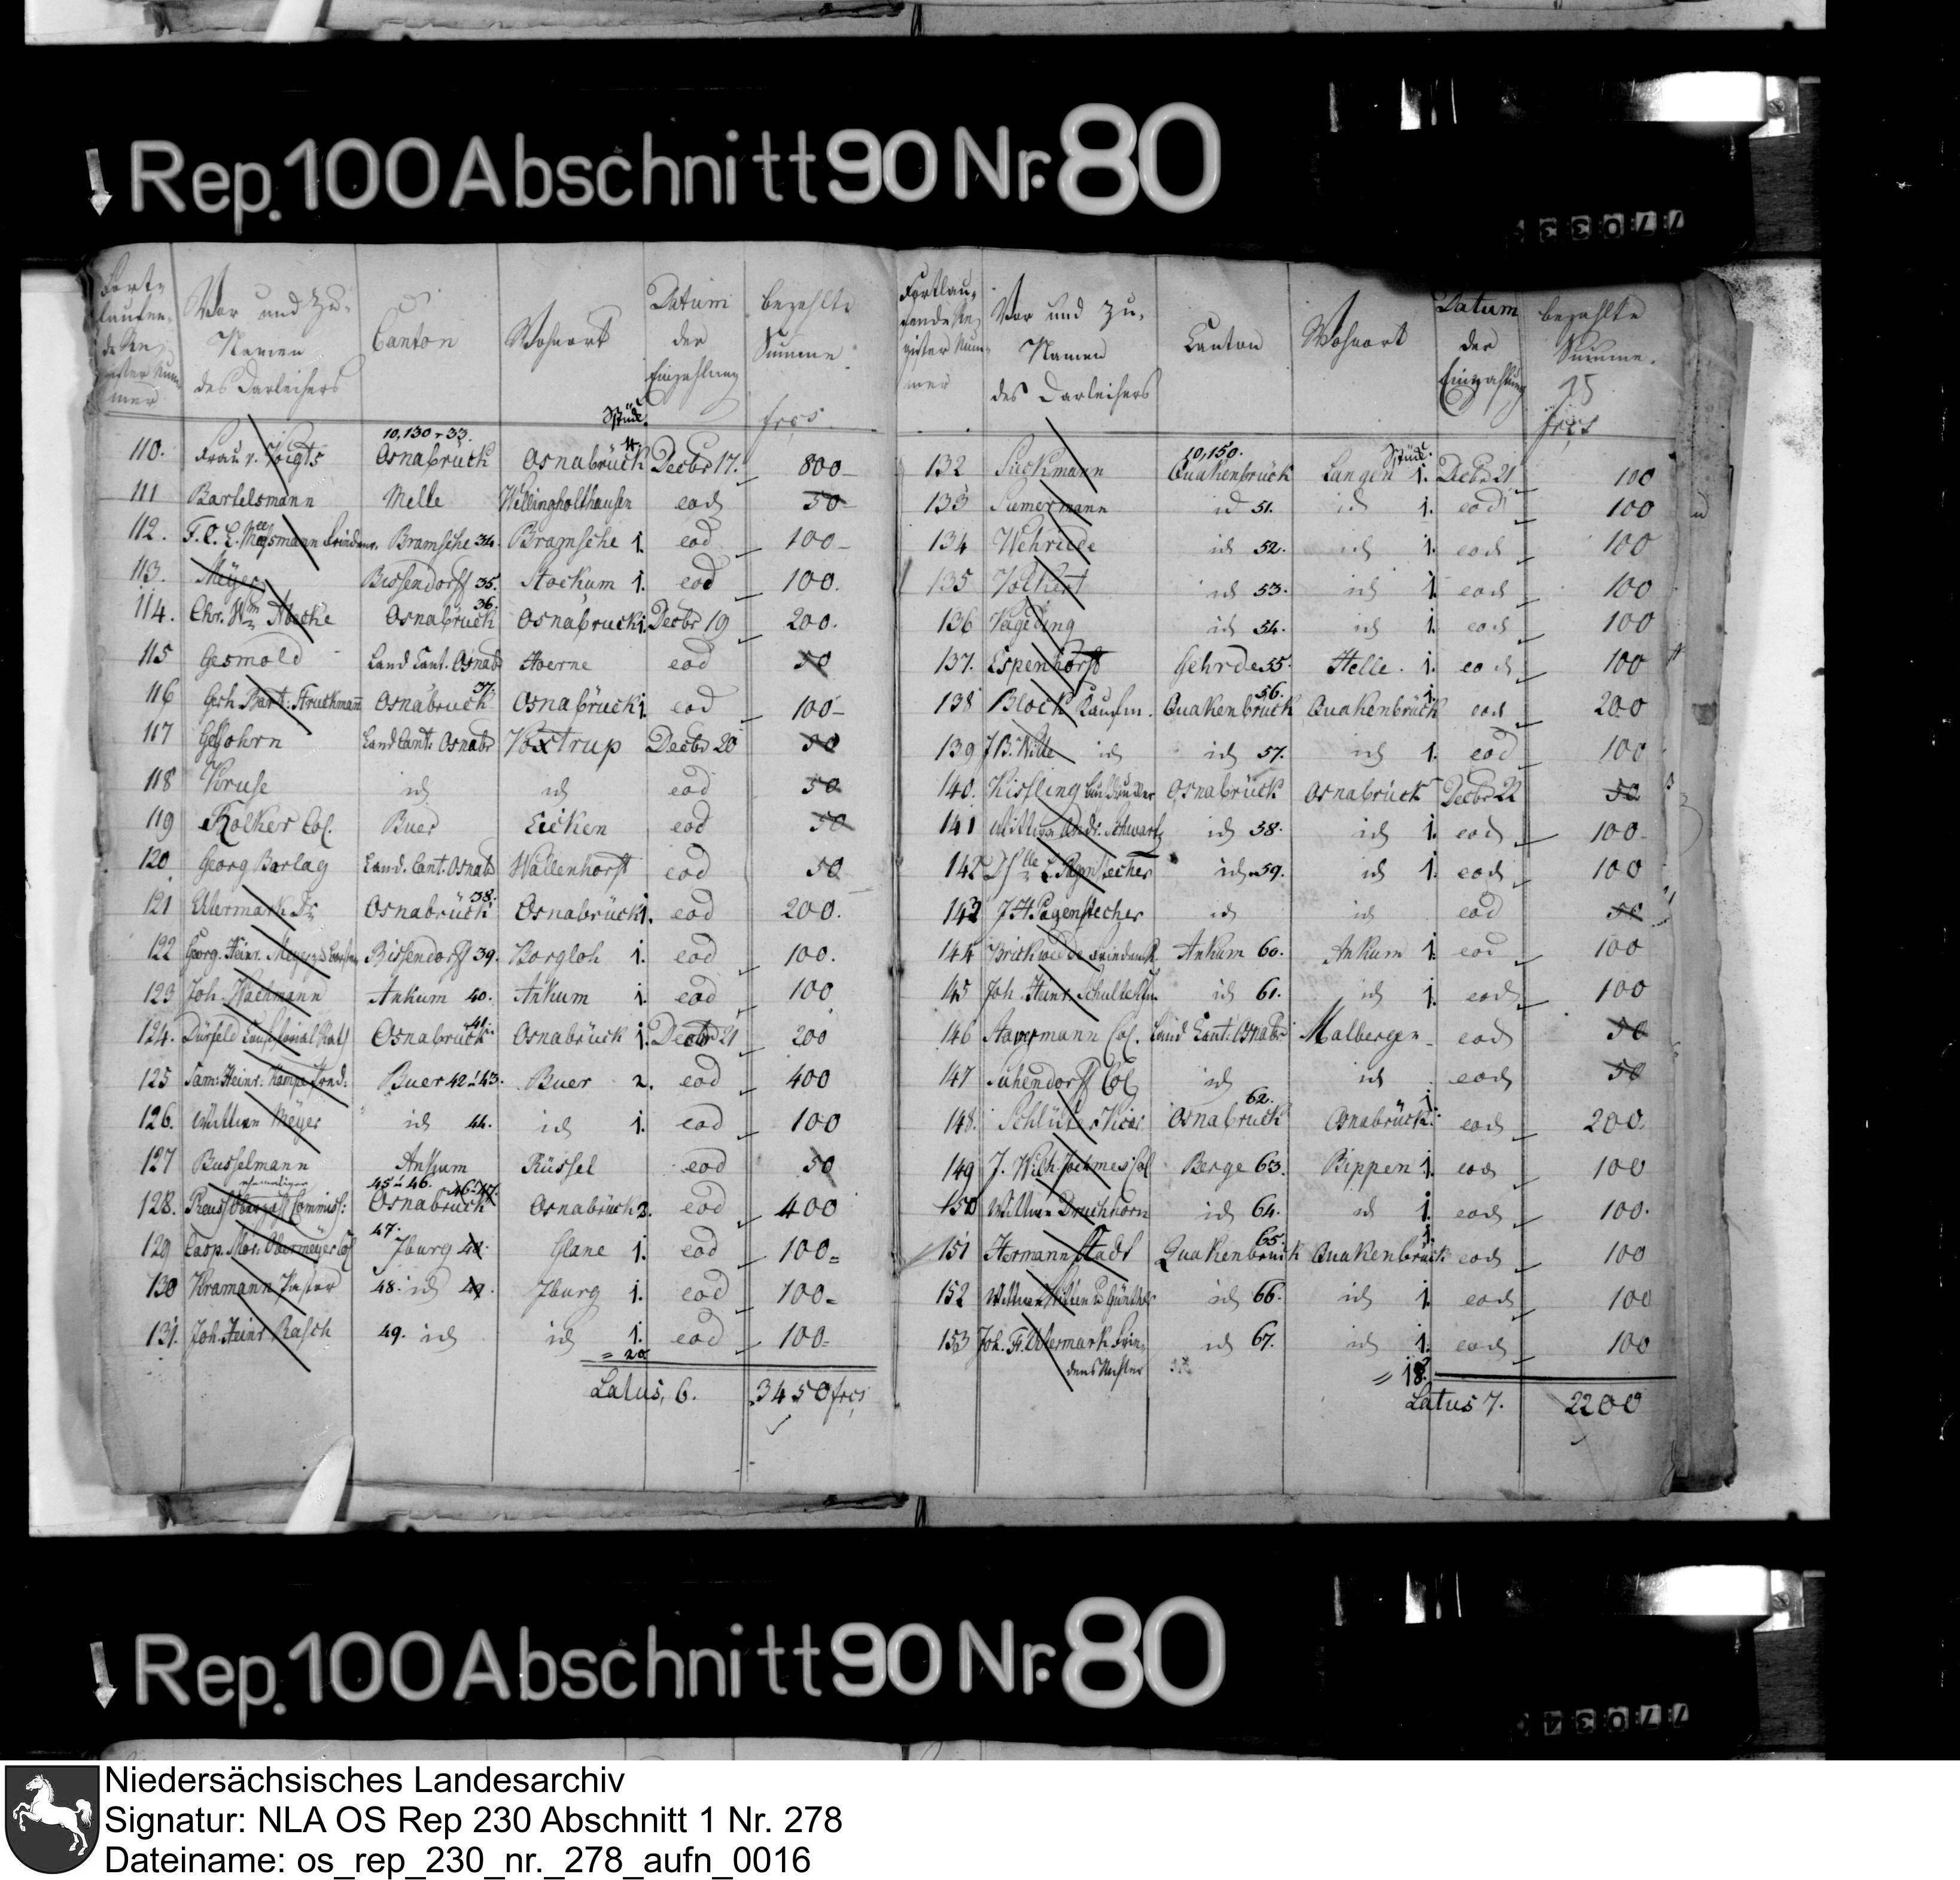 Rep. 100 Abschnitt 90 Nr. 80
77033
Fortlaufende Register Nummer Vor und Zu-Namen des Darleihers Canton Wohnort Datum der Einzahlung bezahlte Summe frcs
Stück
110. Frau v. Voigts 10,130-33. Osnabrück Osnabrück 4. Decbr 17. 800
111 Bartelsmann Melle Wellingholthausen eod 50
112. Bramsche 34. Bramsche 1. eod 100
113. Meyer Bissendorff 35. Stockum 1. eod 100.
114. Chr. Wm Abecke Osnabrück 36. Osnabrück 1. Decbr 19 200.
115 Gesmold Land Cant. Osnab Voerne eod 50
116 Gerh. Bart. Struckmann Osnabruck 37. Osnabrück 1. eod 100
117 Land Cant: Osnabr Voxtrup Decbr 20 50
118 Kruse id id eod 50
119 Rolker Col. Buer Eicken eod 50
120 Georg Barlag Land. Cant. Osnab Wallenhorst eod 50
121 Osnabrück 38. Osnabrück 1. eod 200.
122 Georg Heinr. Meyer Bissendorff 39. Borgloh 1. eod 100.
123 Joh. Wachmann Ankum 40. Ankum 1. eod 100
124. Dürfeld Consistorial Rath Osnabrück 41. Osnabrück 1. Decbr 21 200
125 Sam: Heinr: Kampe Buer 42 u 43. Buer 2. eod 400
126. Wittwe Meyer id 44. id 1. eod 100
127 Busselmann Ankum Rüssel eod 50
128. ehemaliger Commiss: 45 u 46. Osnabrück Osnabrück 2. eod 400
129 Casp. Mor. Obermeyer Col 47. Iburg 48. Glane 1. eod 100
130 Kramann Pastor 48. id 49. Iburg 1. eod 100
131. Joh. Heinr. Rasch 49. id id 1. eod 100
= 20
Latus, 6. 3450 frcs
Fortlaufende Register Nummer Vor und Zu-Namen des Darleihers Canton Wohnort Datum der Einzahlung bezahlte Summe. frcs
Stück
132 Suckmann 10,150. Quakenbrück Langen 1. Decbr 21 100
133 Sumermann id 51. id 1. eod 100
134 id 52. id 1. eod 100
135 Volkert id 53. id 1. eod 100
136 Vageding id 54. id 1. eod 100
137. Espenhorst Gehrde 55. Helle. 1. eod 100
138 Block Kaufm. Quakenbrück 56. Quakenbrück 1. eod 200
139 id id 57. id 1. eod 100
140. Kissling Buchdrucker Osnabrück Osnabrück Decbr 22 50
141 Wittwe Andr. Schwartz id 58. id 1. eod 100
142 Pagenstecher id 59. id 1. eod 100
143 J H Pagenstecher id id eod 50
144 Brickwedde Ankum 60. Ankum 1. eod 100
145 Joh. Heinr. Schulte id 61. id 1. eod 100
146 Col. Land Cant: Osnabr Malbergen eod 50
147 Suhendorff Col id id eod 50
148. Schlüter Vicar Osnabrück 62. Osnabrück 1. eod 200.
149 J. Wilh. Col Berge 63. Bippen 1. eod 100
150 Wittwe Druchhorn id 64. id 1. eod 100.
151 Hermann Stadt Quakenbrück 65. Quakenbrück 1. eod 100
152 id 66. id 1. eod 100
153 Joh. Fr. id 67. id 1. eod 100
= 18.
Latus 7. 2200
Rep. 100 Abschnitt 90 Nr. 80
77034
Niedersächsisches Landesarchiv
Signatur: NLA OS Rep 230 Abschnitt 1 Nr. 278
Dateiname: os_rep_230_nr._278_aufn_0016